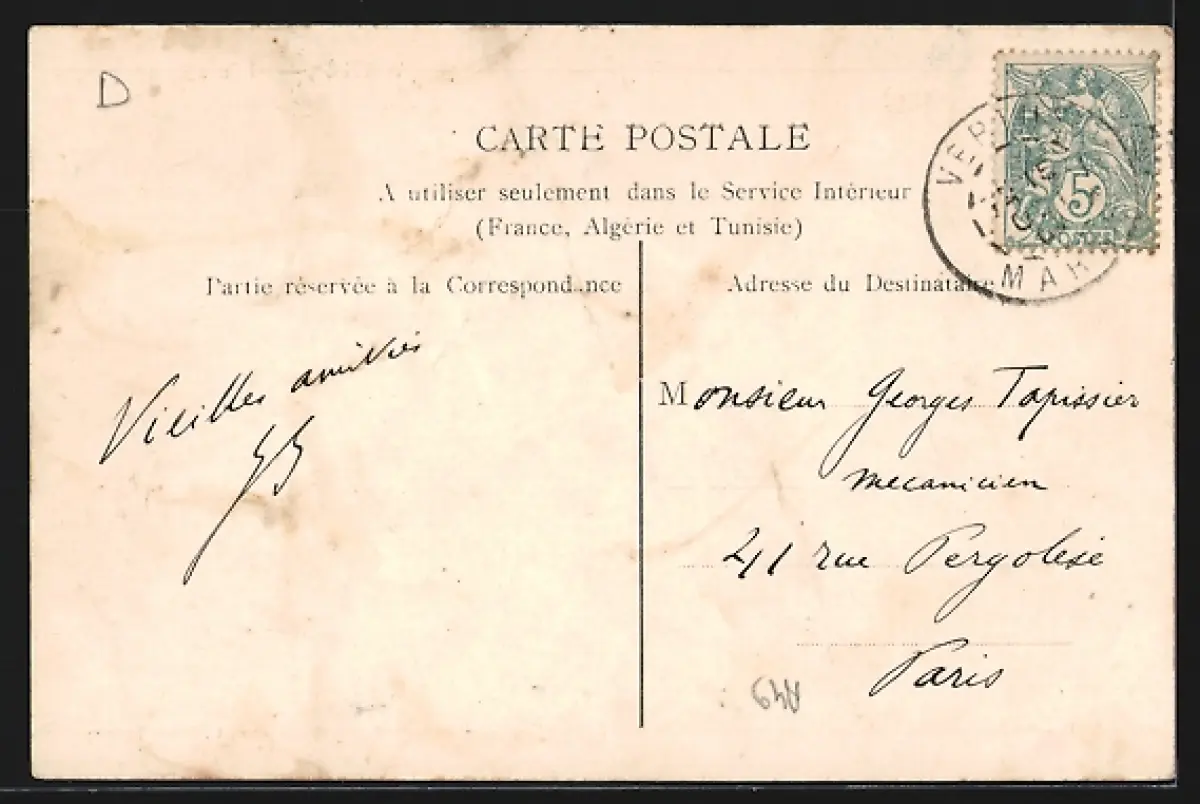 D
CARTE POSTALE
A utiliser seulement dans le Service Intérieur
(France, Algérie et Tunisie)
Partie réservée à la Correspondance
Adresse du Destinataire
5
POSTES
MAR
Vieilles amitiés
Monsieur Georges Tapissier
mecanicien
41 rue Pergolèse
Paris